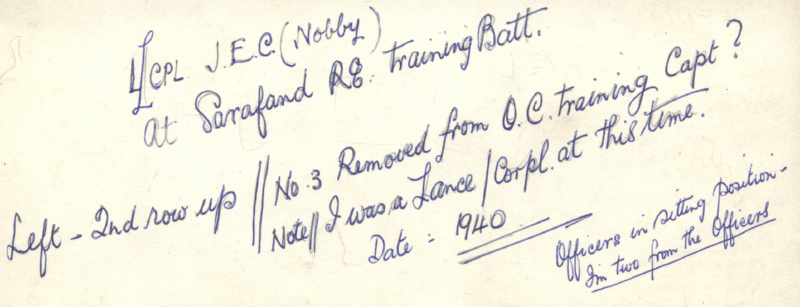 L/CPL J.E.C. (Nobby)
At Sarafand R.E. Training Batt.
Left - 2nd row up // No. 3 Removed from O.C. training Capt?
Note// I was a Lance/Corpl. at this time.
Date: 1940
Officers in sitting position -
Im two from the Officers